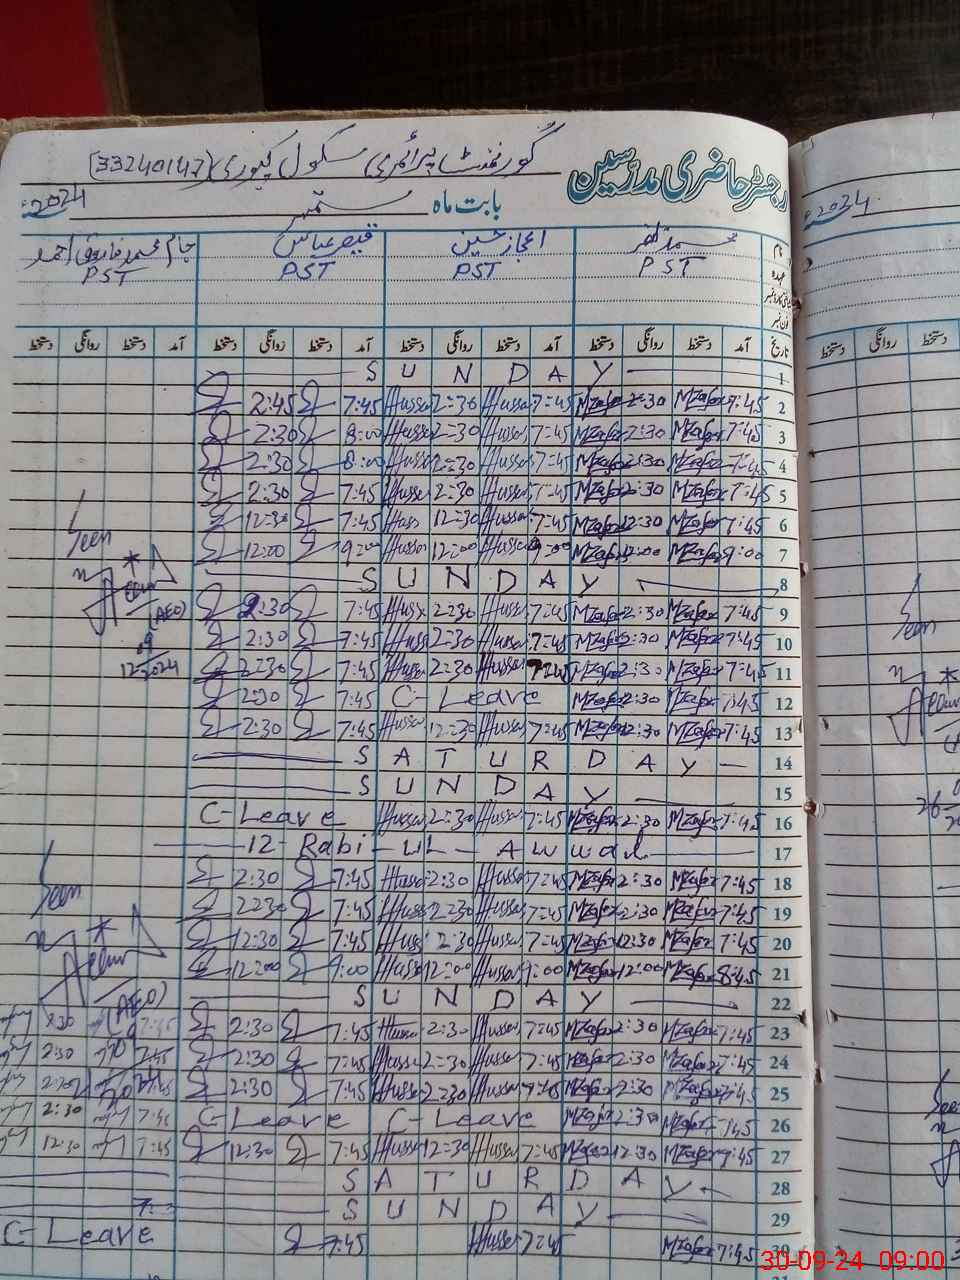 گورنمنٹ پرائمری سکول (33240147) رجسٹر حاضری مدرسین
بابت ماہ ستمبر 2024
2024
نام محمد ظفر اعجاز حسین قیصر عباس جام محمد فاروق احمد
عہدہ PST PST PST PST
فون نمبر
تاریخ آمد دستخط روانگی دستخط آمد دستخط روانگی دستخط آمد دستخط روانگی دستخط آمد دستخط روانگی دستخط
روانگی دستخط
SUNDAY 1
2:45 7:45 Hussa 2:30 Hussa 7:45 MZafar 2:30 MZafar 7:45 2
2:30 8:00 Hussa 2:30 Hussa 7:45 MZafar 2:30 MZafar 7:45 3
2:30 8:00 Hussa 2:30 Hussa 7:45 MZafar 2:30 MZafar 7:45 4
2:30 7:45 Hussa 2:30 Hussa 7:45 MZafar 2:30 MZafar 7:45 5
12:30 7:45 Hass 12:30 Hussa 7:45 MZafar 12:30 MZafar 7:45 6
12:00 9:00 Hussa 12:00 Hussa 9:00 MZafar 12:00 MZafar 9:00 7
SUNDAY 8
2:30 7:45 Huss 2:30 Hussa 7:45 MZafar 2:30 MZafar 7:45 9
2:30 7:45 Huss 2:30 Hussa 7:45 MZafar 2:30 MZafar 7:45 10
2:30 7:45 Hussa 2:30 Hussa 7:45 MZafar 2:30 MZafar 7:45 11
2:30 7:45 C-Leave MZafar 2:30 MZafar 7:45 12
2:30 7:45 Hussa 12:30 Hussa 7:45 MZafar 2:30 MZafar 7:45 13
SATURDAY 14
SUNDAY 15
C-Leave Hussa 2:30 Hussa 7:45 MZafar 2:30 MZafar 7:45 16
12-Rabi-UL-Awwal 17
2:30 7:45 Hussa 2:30 Hussa 7:45 MZafar 2:30 MZafar 7:45 18
2:30 7:45 Huss 2:30 Hussa 7:45 MZafar 2:30 MZafar 7:45 19
12:30 7:45 Huss 2:30 Hussa 7:45 MZafar 12:30 MZafar 7:45 20
12:00 9:00 Huss 12:00 Hussa 9:00 MZafar 12:00 MZafar 8:45 21
SUNDAY 22
2:30 7:45 2:30 7:45 Hussa 2:30 Hussa 7:45 MZafar 2:30 MZafar 7:45 23
2:30 7:45 2:30 7:45 Hussa 2:30 Hussa 7:45 MZafar 2:30 MZafar 7:45 24
2:30 7:45 2:30 7:45 Hussa 2:30 Hussa 7:45 MZafar 2:30 MZafar 7:45 25
2:30 7:45 C-Leave C-Leave MZafar 2:30 MZafar 7:45 26
12:30 7:45 12:30 7:45 Hussa 12:30 Hussa 7:45 MZafar 12:30 MZafar 7:45 27
SATURDAY 28
SUNDAY 29
C-Leave 7:45 Hussa 7:45 MZafar 7:45 30
Seen
(AEO)
09
12-2024
Seen
(AEO)
Seen
30-09-24 09:00